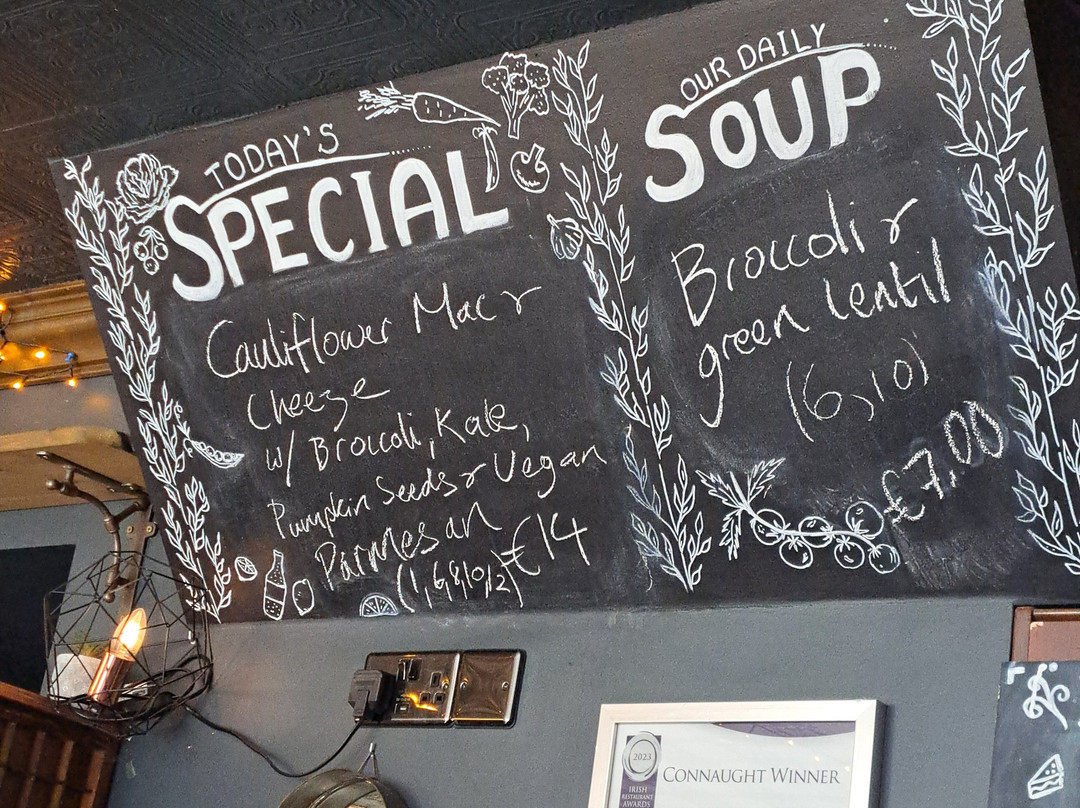 TODAY'S
SPECIAL
Cauliflower Mac &
Cheeze
w/ Broccoli, Kale,
Pumpkin Seeds & Vegan
Parmesan
€14
OUR DAILY
SOUP
Broccoli &
green lentil
(6,10)
€7.00
2023
IRISH
RESTAURANT
AWARDS
CONNAUGHT WINNER